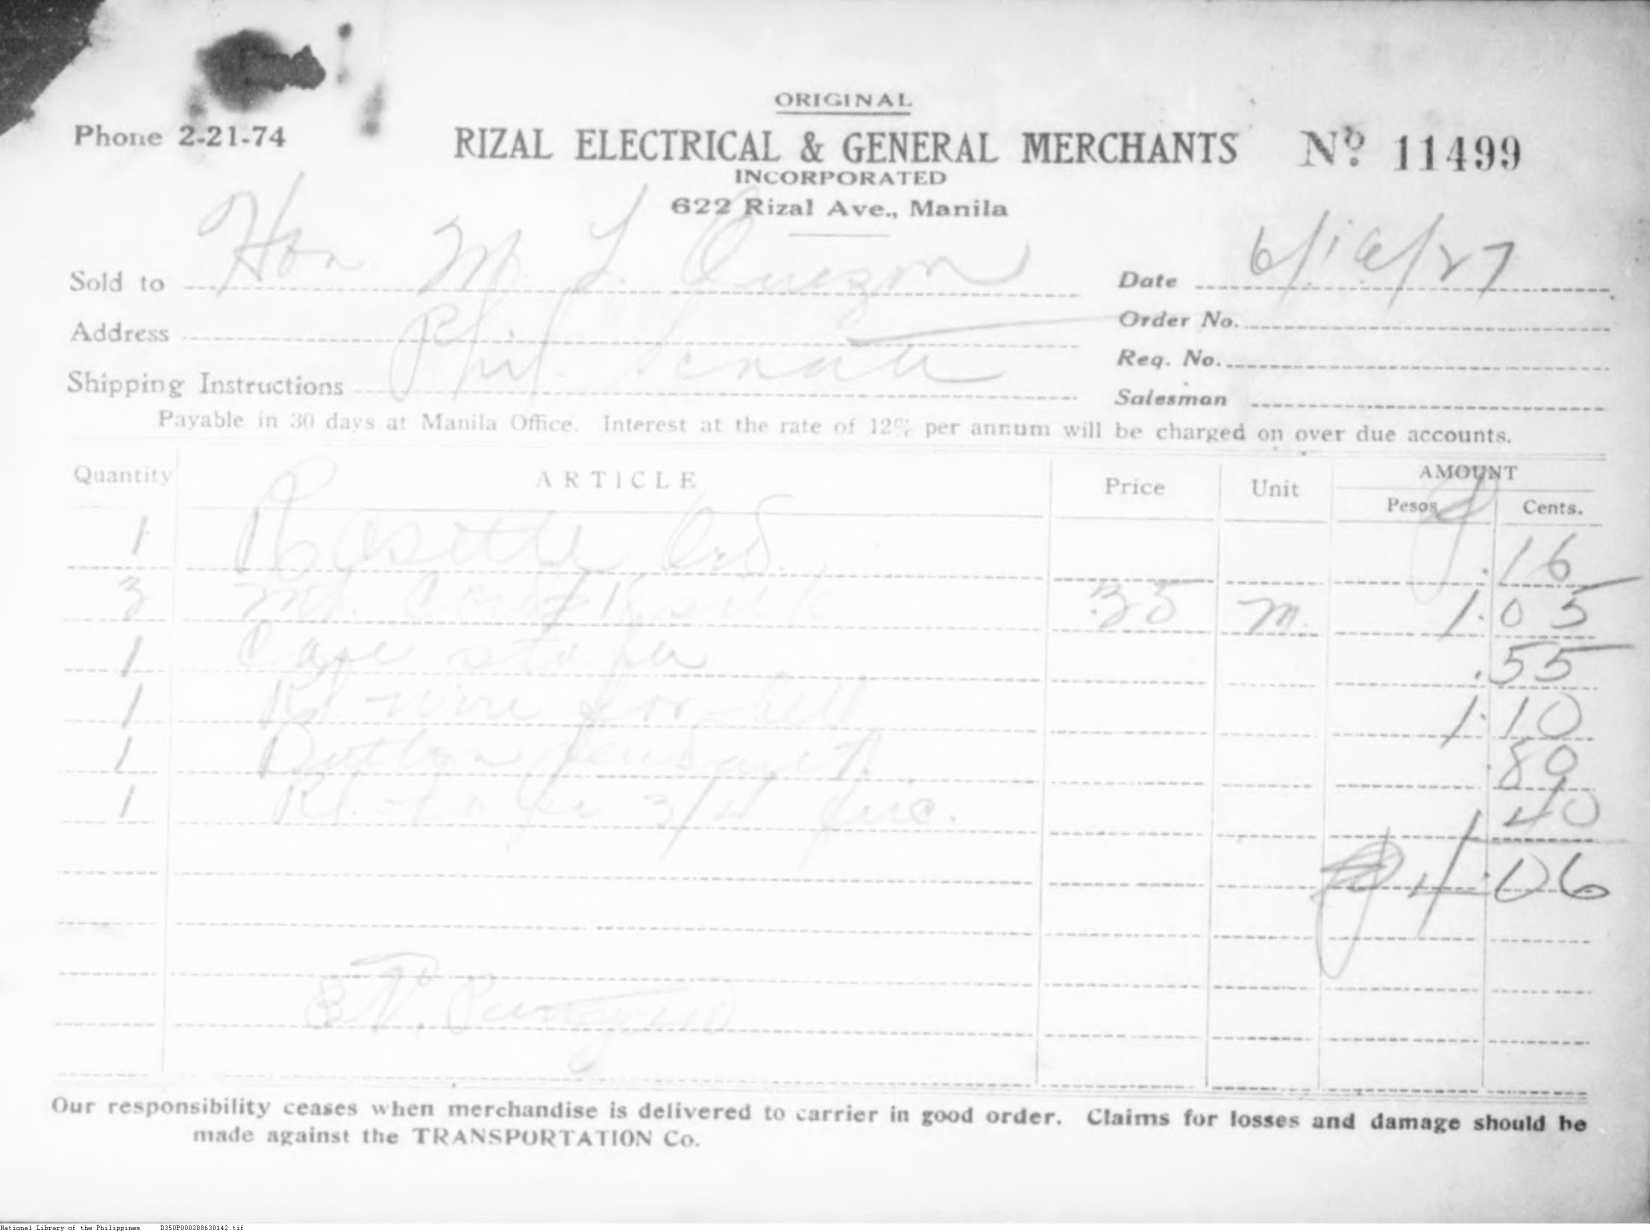 ORIGINAL
Phone 2-21-74
RIZAL ELECTRICAL & GENERAL MERCHANTS Nº 11499
INCORPORATED
622 Rizal Ave., Manila
Sold to Hon M L Quezon Date 6/16/27
Address Phil. Senate Order No.
Req. No.
Shipping Instructions Salesman
Payable in 30 days at Manila Office. Interest at the rate of 12% per annum will be charged on over due accounts.
Quantity ARTICLE Price Unit AMOUNT
Pesos Cents.
1 Rosette .16
3 .35 m. 1.05
1 .55
1 wire for bell 1.10
1 Button .80
1 3/4 .40
4.06
Our responsibility ceases when merchandise is delivered to carrier in good order. Claims for losses and damage should be
made against the TRANSPORTATION Co.
National Library of the Philippines D350P000200630142.tif